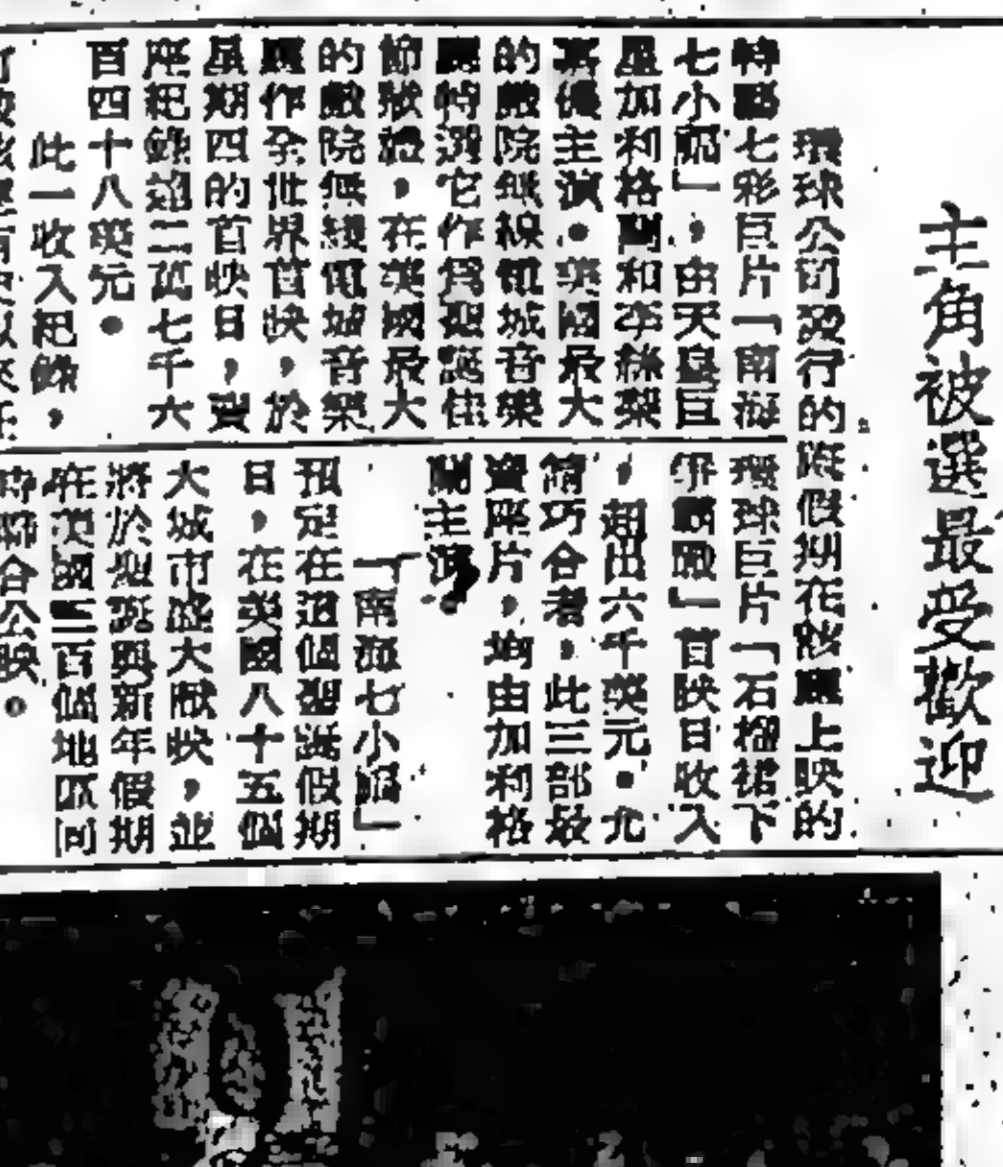 主角被選最受歡迎
環球公司發行的 假期在 上映的
特 七彩巨片「南海
七小福」，由天皇巨
星加利格蘭和李絲梨
嘉儂主演。英國最大
的戲院無線電城音樂
廳特選它作爲聖誕佳
節獻禮，在英國最大
的戲院無綫電城音樂
廳作全世界首映，於
星期四的首映日，賣
座紀錄超二萬七千六
百四十八英元。
此一收入紀錄，
環球巨片「石榴裙下
爭 戰」首映日收入
，超出六千英元。尤
稱巧合者，此三部最
賣座片，均由加利格
蘭主演。
「南海七小福」
預定在這個聖誕假期
日，在英國八十五個
大城市盛大献映，並
將於聖誕與新年假期
在英國三百個地區同
時聯合公映。